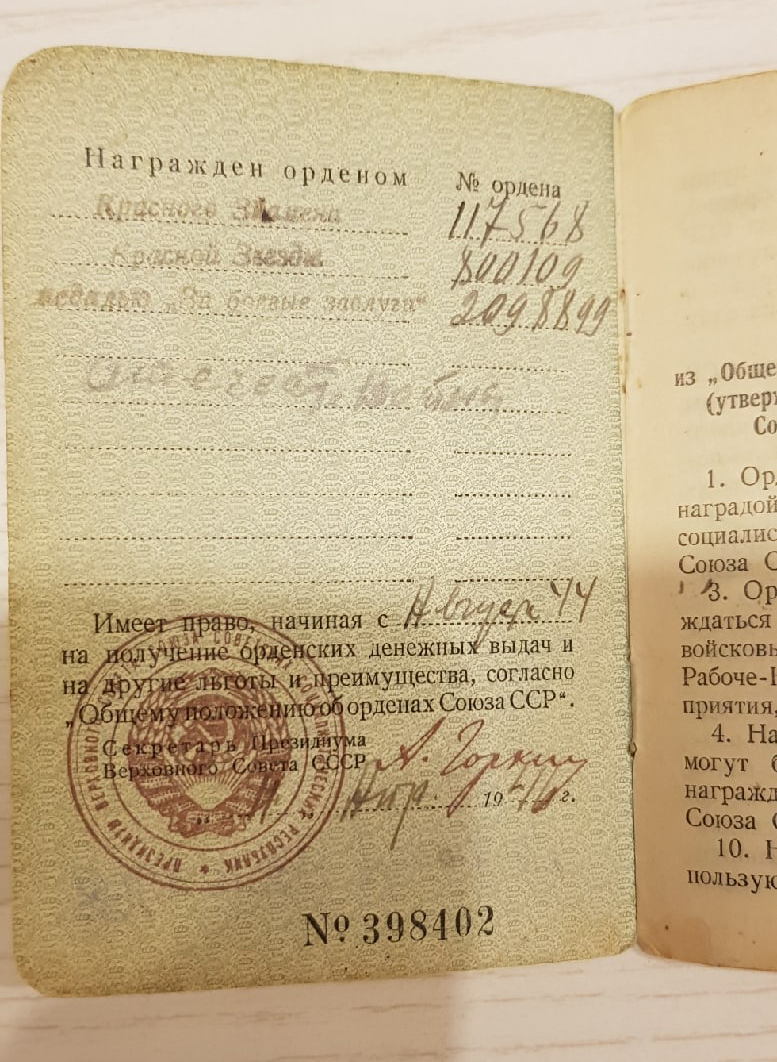 Награжден орденом
№ ордена
Красного Знамени
117568
Красной Звезды
800109
медалью „За боевые заслуги“
2098899
Отечеств. войны
Имеет право, начиная с Август 44
на получение орденских денежных выдач и
на другие льготы и преимущества, согласно
„Общему положению об орденах Союза ССР“.
Секретарь Президиума
Верховного Совета СССР
А. Горкин
Апр. 19 г.
№ 398402
ПРЕЗИДИУМ ВЕРХОВНОГО СОЮЗА СОВЕТСКИХ РЕСПУБЛИК
из „Обще
(утвер
Со
1. Ор
наградой
социалис
Союза С
3. Ор
ждаться
войсковы
Рабоче-
приятия,
4. На
могут
награжд
Союза С
10. Н
пользую